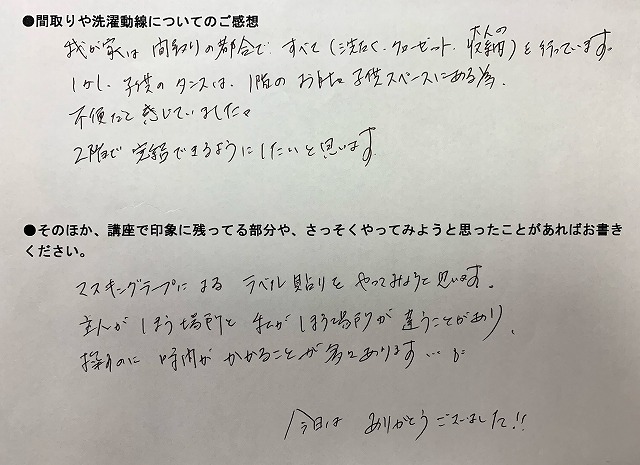 ●間取りや洗濯動線についてのご感想
我が家は間取りの都合で、すべて（洗たく、クローゼット、大人の収納）を行っています。
しかし、子供のタンスは、1階の 子供スペースにある為、
不便だと感じていました。
2階で完結できるようにしたいと思います
●そのほか、講座で印象に残ってる部分や、さっそくやってみようと思ったことがあればお書き
ください。
マスキングテープによる ラベル貼りを やってみようと思います。
主人がしまう場所と 私がしまう場所が 違うことがあり、
探すのに 時間が かかることが多々あります…
今日は ありがとうございました!!